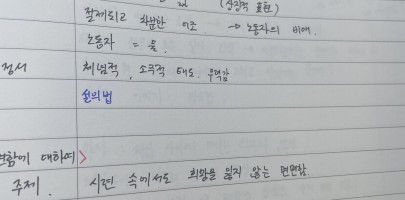 (상징적 표현)
절제되고 차분한 어조. → 노동자의 비애.
노동자 = 물.
정서 체념적, 소극적 태도, 무력감
설의법
함께 대하여>
주제. 시련 속에서도 희망을 잃지 않는 면연함.